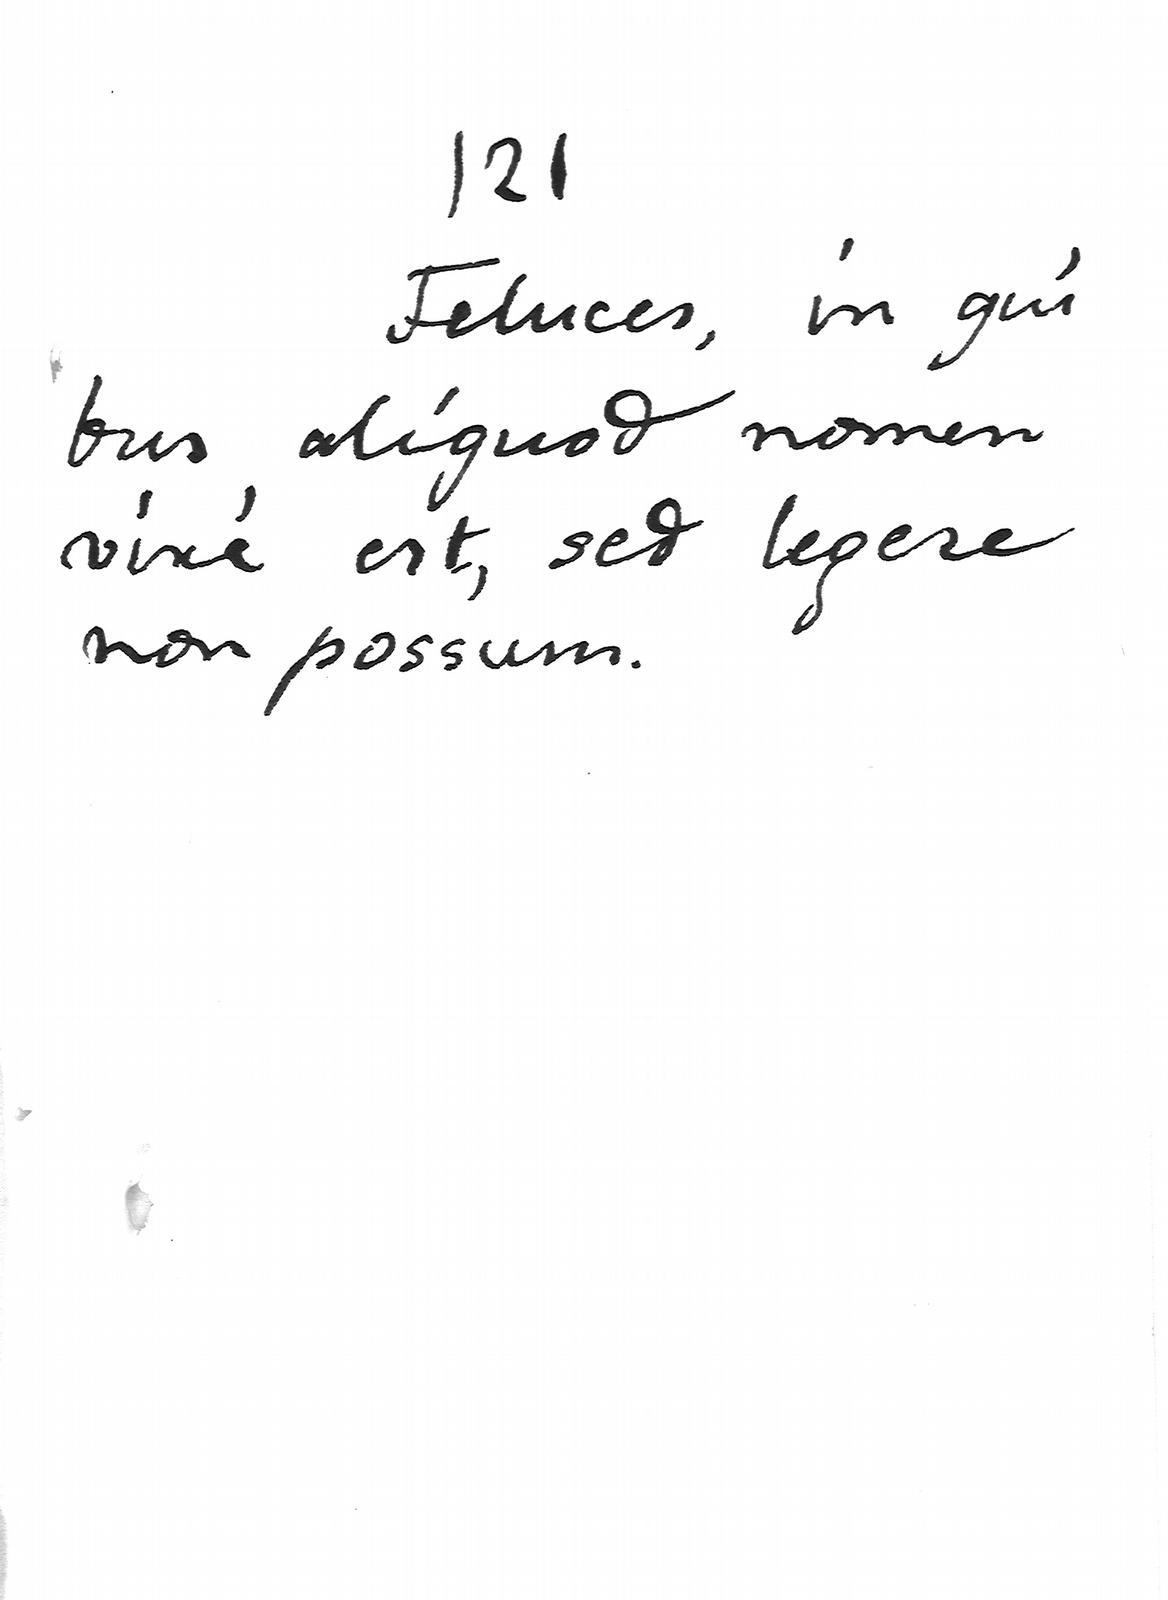 121
Feluces, in qui
bus aliquod nomen
vixé est, sed legere
non possum.